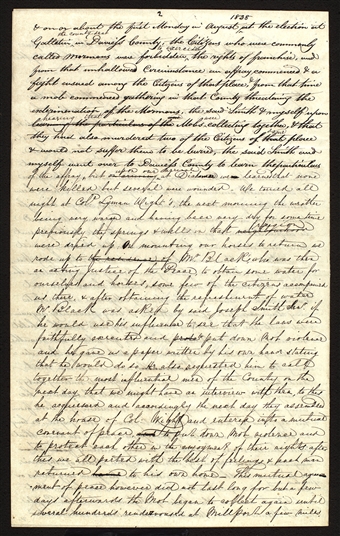 2
1838
& on or about the first Monday in August, at the election at
the county seat
Gallatin, in Daviess County, the Citizens who were commonly
called Mormons were forbidden the rights of franchise, and
from that unhallowed circumstance an affray commenced & a
fight ensued among the Citizens of that place, & from that time
a mob commenced gathering in that County threatening the
extermination of the Mormons, the said Smith & myself upon
hearing that
the Mobs collecting together, & that
they had also murdered two of the Citizens of that place
& would not suffer them to be buried, the said Smith and
myself went over to Daviess County to learn the particulars
of the affray, but
upon our arrival
at Diahman we learned that none
were killed but several were wounded. We tarried all
night at Col. Lyman Wight's, the next morning the weather
being very warm and having been very dry for some time
previously, the springs & wells in that
region
were dried up. On mounting our horses to return we
rode up to
Mr Black's who was then
an acting Justice of the Peace to obtain some water for
ourselves and horses, some few of the citizens accompanied
us there, & after obtaining the refreshment of water
Mr Black was asked by said Joseph Smith Sen. if
he would use his influence to see that the laws were
faithfully executed and put down Mob violence
and he gave us a paper written by his own hand stating
that he would do so. He also requested him to call
together the most influential men of the County on the
next day that we might have an interview with them, to this
he acquiesced and accordingly the next day they assembled
at the house of Col. Wight and entered into a mutual
covenant of peace to put down Mob violence and
to protect each other in the enjoyment of their rights, after
this we all parted with the best of feelings & each man
returned to his own home. This mutual agree-
ment of peace however did not last long for but a few
days afterwards the Mob began to collect again until
several hundreds rendezvoused at Millport, a few miles